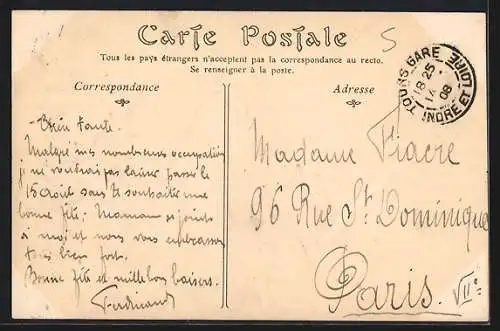 Carte Postale
5
Tous les pays étrangers n'acceptent pas la correspondance au recto.
Se renseigner à la poste.
Correspondance
Adresse
TOURS GARE
18 25
14
08
INDRE ET LOIRE
Tante.
Malgré mes nombreuses occupations
je ne voudrai pas laisser passer le
15 Août sans te souhaiter une
bonne fête. Maman se joint
à moi et nous vous embrassons
tous bien fort.
Bonne fête et mille bons baisers.
Ferdinand
Madame Fiacre
96 Rue St Dominique
Paris. VIIe